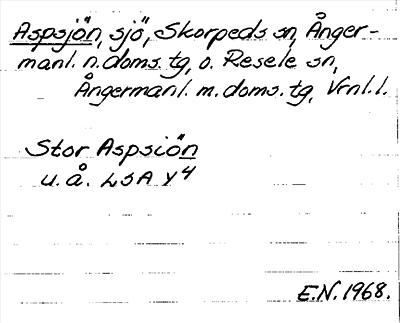 Aspsjön, sjö, Skorpeds sn, Ånger-
manl. n. doms. tg, o. Resele sn,
Ångermanl. m. doms. tg, Vrnl. l.
Stor Aspsiön
u. å. LSA Y4
E.N. 1968.